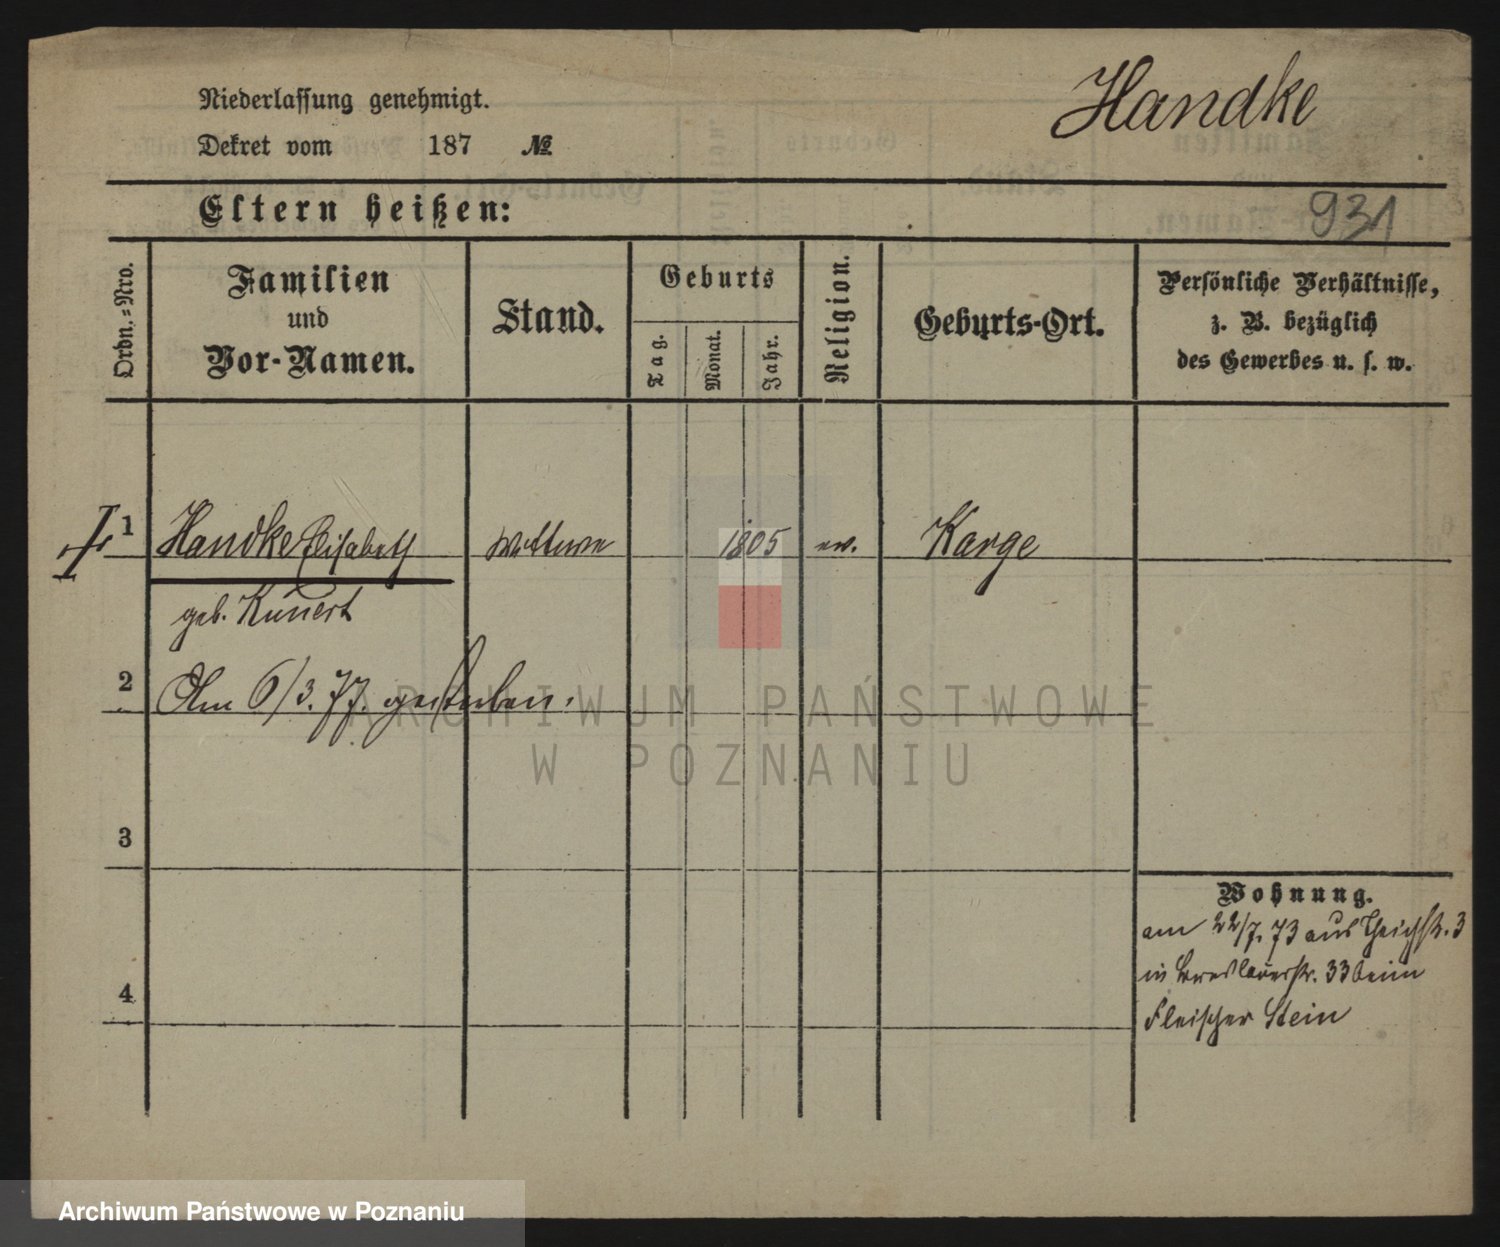 Handke
Niederlassung genehmigt.
Dekret vom 187 №
Eltern heißen:
931
Ordn.=Nro.
Familien
und
Vor-Namen.
Stand.
Geburts
Tag.
Monat.
Jahr.
Religion.
Geburts-Ort.
Persönliche Verhältnisse,
z. B. bezüglich
des Gewerbes u. s. w.
1 Handke Elisabeth Wittwe 1805 ev. Karge
geb. Kunert
2 Am 6/3. 77. gestorben.
ARCHIWUM PAŃSTWOWE
W POZNANIU
3
Wohnung.
am 22/7. 73 aus Teichstr. 3
in Breslauerstr. 33 beim
Fleischer Stein
4
Archiwum Państwowe w Poznaniu